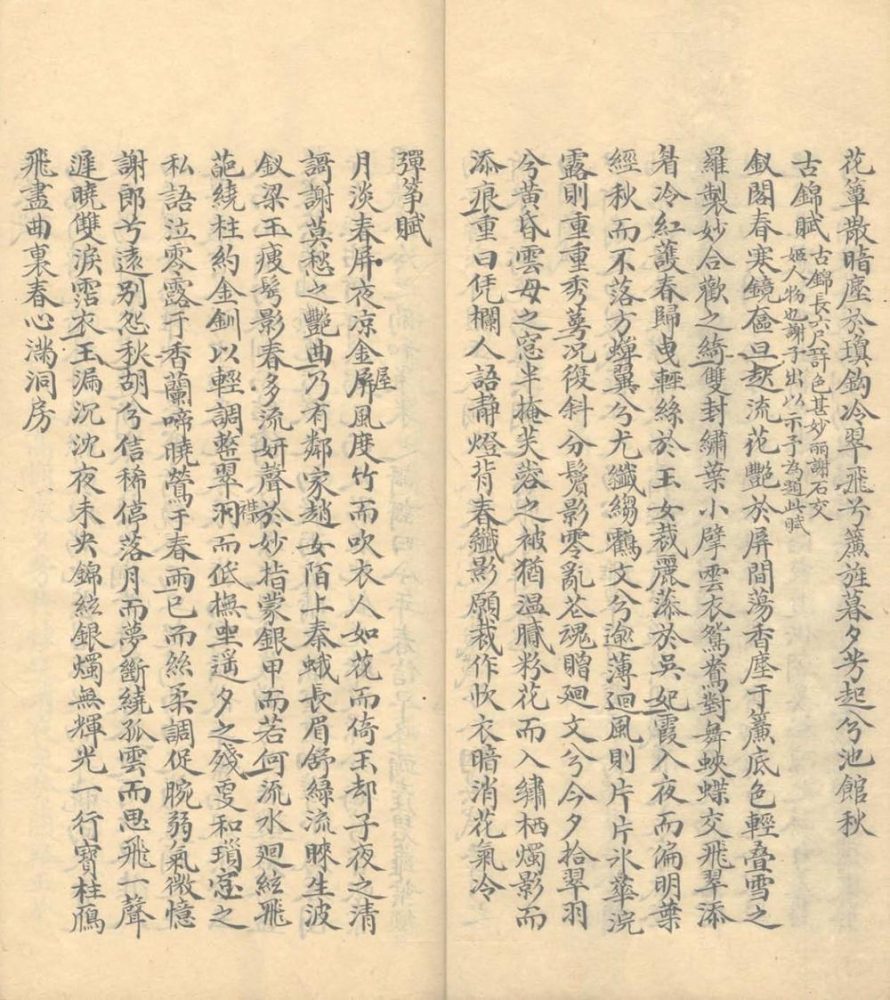 花簟散暗塵於瓊鈎冷翠飛兮簾旌暮夕芳起兮池館秋
古錦賦
古錦長六尺許色甚妙麗謝石交
姬人物也謝子出以示予為題此賦
釵閣春寒鏡奩旦起流花艷於屏間蕩香塵于簾底色輕叠雪之
羅製妙合歡之綺雙封繡葉小擘雲衣鴛鴦對舞蛺蝶交飛翠添
眉冷紅護春歸曳輕絲於玉女裁麗藻於吳妃霞入夜而偏明葉
經秋而不落方蟬翼兮尤纖縐鶴文兮逾薄迴風則片片氷華浣
露則重重秀萼况復斜分鬢影零亂花魂贈廻文兮今夕拾翠羽
兮黃昏雲母之窓半掩芙蓉之被猶溫膩粉花而入繡栖燭影而
添痕重曰凭欄人語靜燈背春纖影願裁作㡌衣暗消花氣冷
彈箏賦
月淡春屏夜凉金屋風度竹而吹衣人如花而倚玉却子夜之清
謌謝莫愁之艷曲乃有鄰家趙女陌上秦蛾長眉舒綠流睞生波
釵梁玉瘦鬓影春多流妍聲於妙指蒙銀甲而若何流水廻絃飛
葩繞柱約金釧以輕調整翠襟而低撫坐遥夕之殘更和瑣窓之
私語泣零露于香蘭啼曉鶯于春雨已而絲柔調促腕弱氣微憶
謝郎兮遠别怨秋胡兮信稀停落月而夢斷繞孤雲而思飛一聲
遲曉雙淚霑衣玉漏沉沈夜未央錦絃銀燭無輝光一行寶柱鴈
飛盡曲裏春心滿洞房